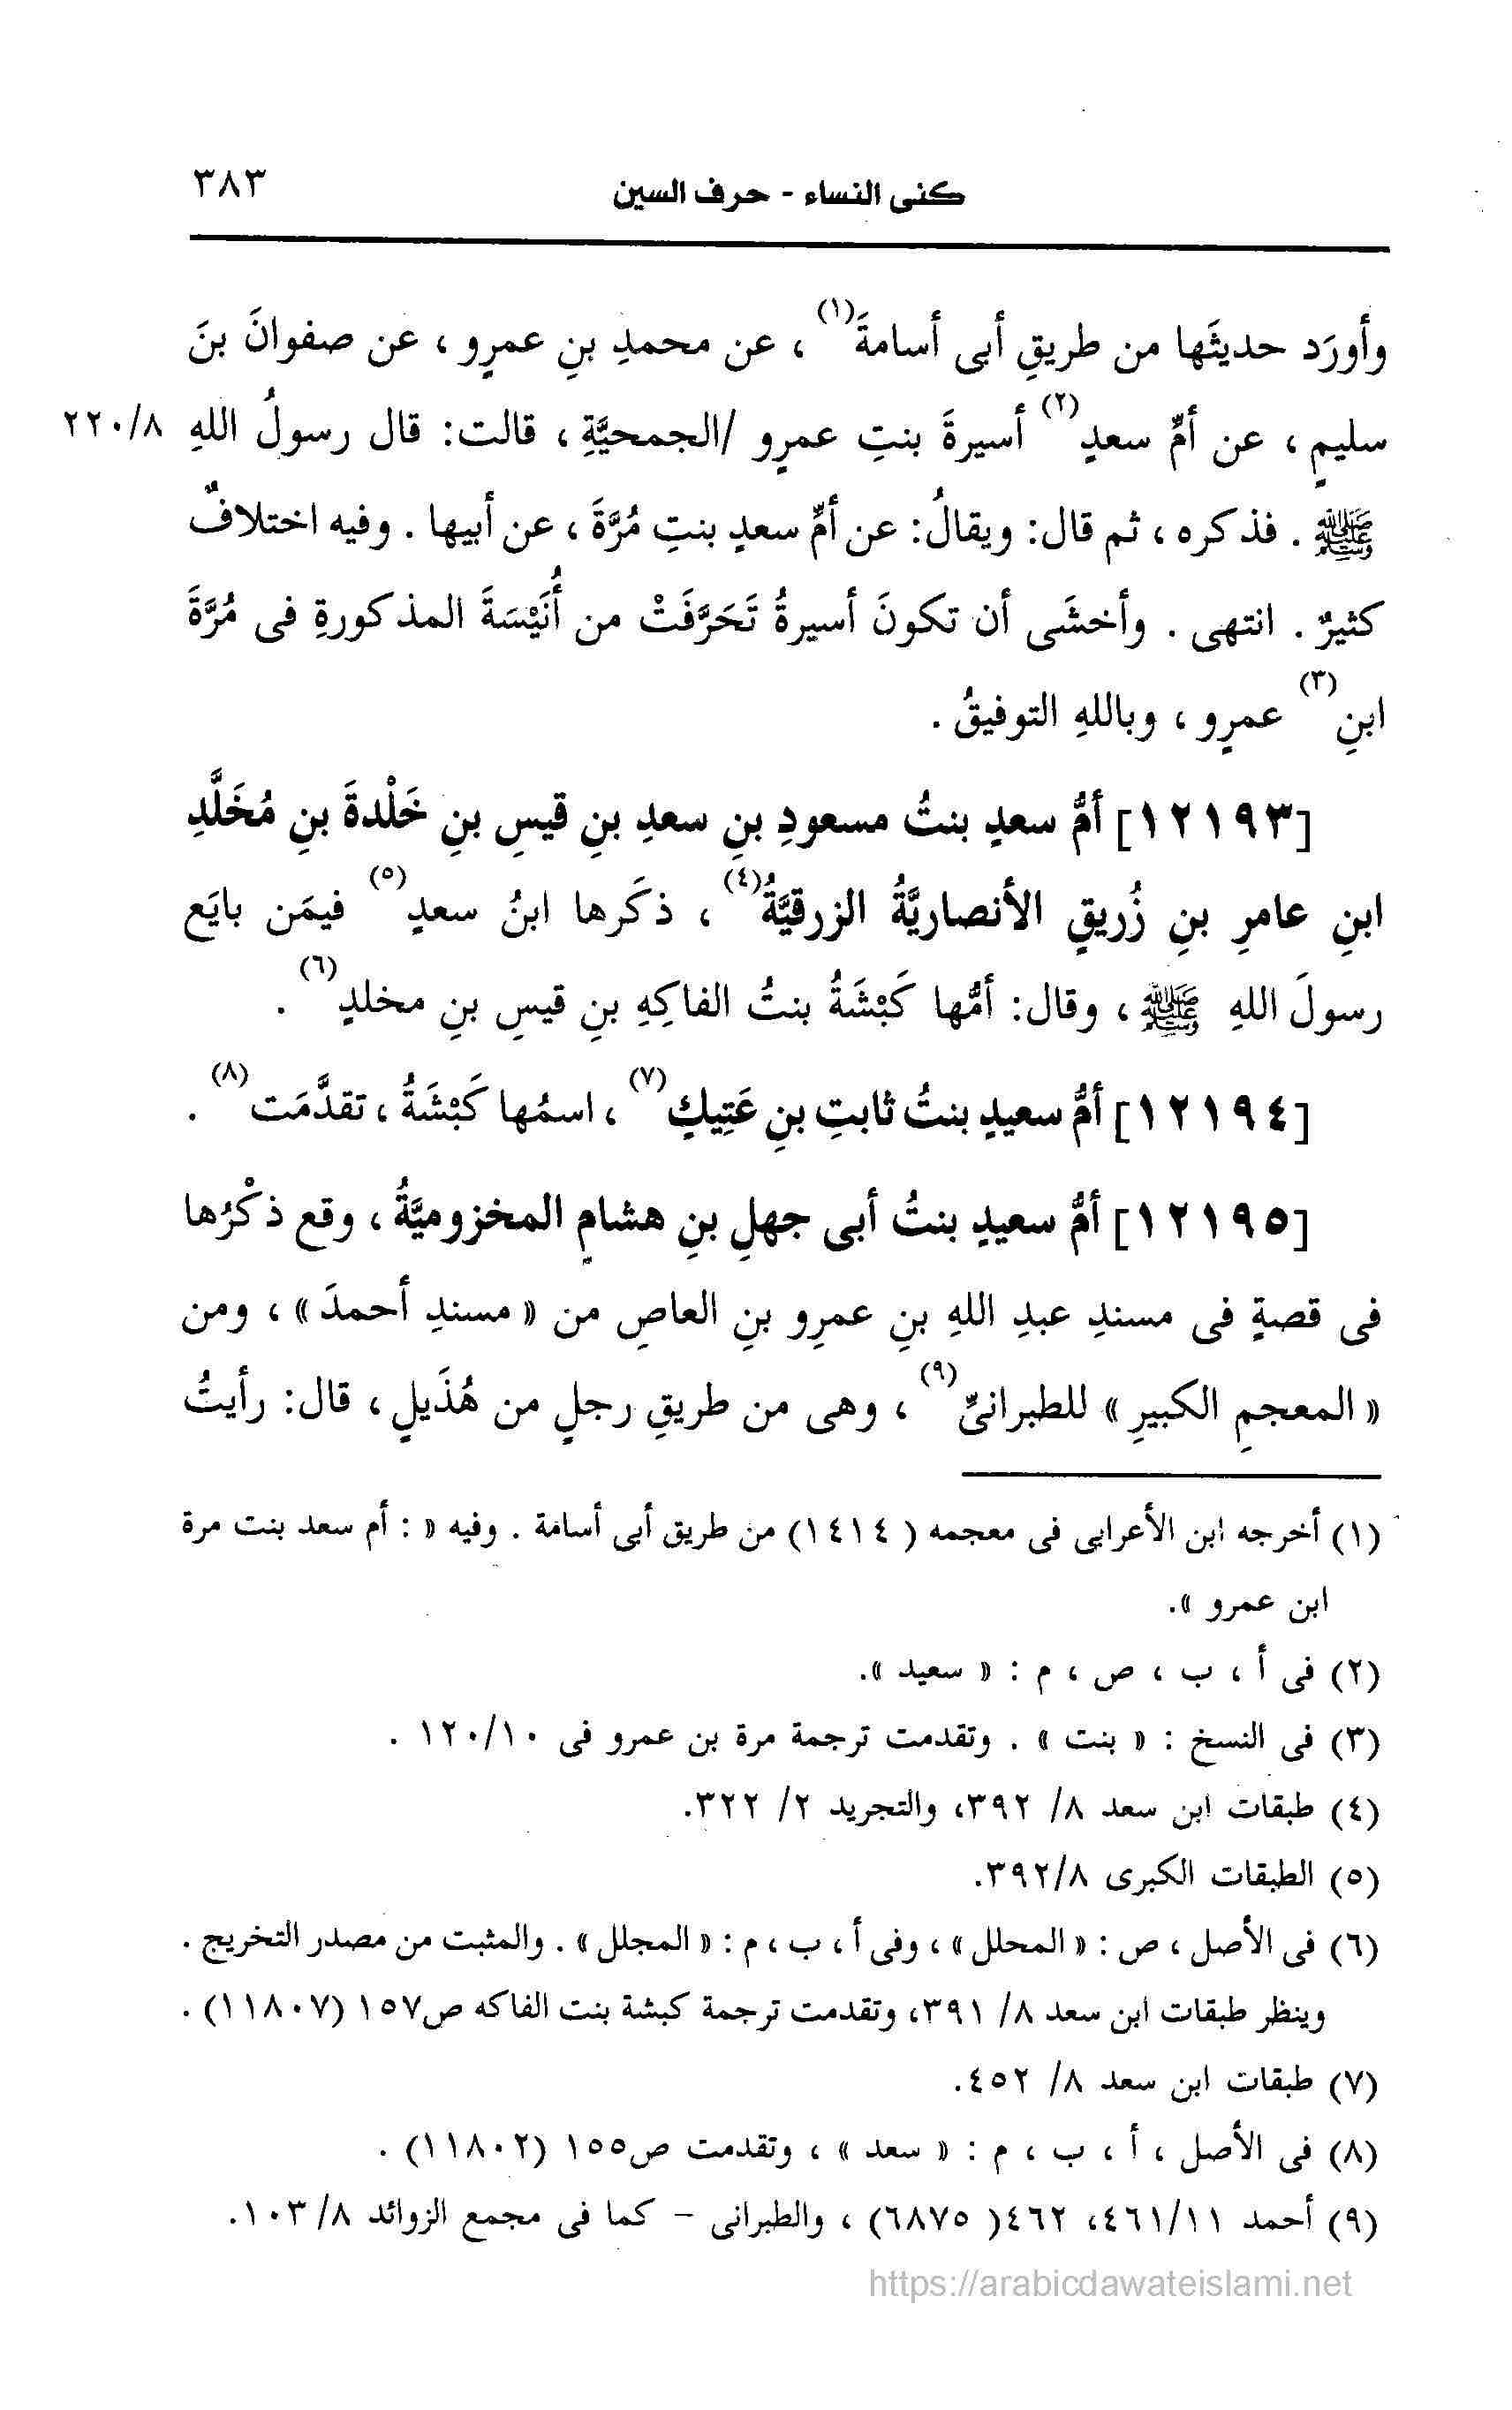 كنى النساء - حرف السين ٣٨٣
وأورَد حديثَها من طريقِ أبى أسامةَ(١) ، عن محمدِ بنِ عمرٍو ، عن صفوانَ بنَ
سليمٍ ، عن أمِّ سعدٍ(٢) أسيرةَ بنتِ عمرٍو /الجمحيَّةِ ، قالت: قال رسولُ اللهِ ٢٢٠/٨
ﷺ . فذكره ، ثم قال: ويقالُ: عن أمِّ سعدٍ بنتِ مُرَّةَ ، عن أبيها . وفيه اختلافٌ
كثيرٌ . انتهى . وأخشَى أن تكونَ أسيرةُ تَحَرَّفَتْ من أُنَيْسَةَ المذكورةِ فى مُرَّةَ
ابنِ(٣) عمرٍو ، وباللهِ التوفيقُ .
[١٢١٩٣] أمُّ سعدٍ بنتُ مسعودِ بنِ سعدِ بنِ قيسِ بنِ خَلْدةَ بنِ مُخَلَّدِ
ابنِ عامرِ بنِ زُريقٍ الأنصاريَّةُ الزرقيَّةُ(٤) ، ذكَرها ابنُ سعدٍ(٥) فيمَن بايَع
رسولَ اللهِ ﷺ ، وقال: أمُّها كَبْشَةُ بنتُ الفاكِهِ بنِ قيسِ بنِ مخلدٍ(٦) .
[١٢١٩٤] أمُّ سعيدٍ بنتُ ثابتِ بنِ عَتِيكٍ(٧) ، اسمُها كَبْشَةُ ، تقدَّمَت(٨) .
[١٢١٩٥] أمُّ سعيدٍ بنتُ أبى جهلِ بنِ هشامٍ المخزوميَّةُ ، وقع ذكْرُها
فى قصةٍ فى مسندِ عبدِ اللهِ بنِ عمرِو بنِ العاصِ من « مسندِ أحمدَ » ، ومن
« المعجمِ الكبيرِ » للطبرانىِّ(٩) ، وهى من طريقِ رجلٍ من هُذَيلٍ ، قال: رأيتُ
(١) أخرجه ابن الأعرابى فى معجمه ( ١٤١٤) من طريق أبى أسامة . وفيه « : أم سعد بنت مرة
ابن عمرو ».
(٢) فى أ ، ب ، ص ، م : « سعيد ».
(٣) فى النسخ : « بنت » . وتقدمت ترجمة مرة بن عمرو فى ١٢٠/١٠ .
(٤) طبقات ابن سعد ٨/ ٣٩٢، والتجريد ٢/ ٣٢٢.
(٥) الطبقات الكبرى ٣٩٢/٨.
(٦) فى الأصل ، ص : « المحلل » ، وفى أ ، ب ، م : « المجلل » . والمثبت من مصدر التخريج .
وينظر طبقات ابن سعد ٨/ ٣٩١، وتقدمت ترجمة كبشة بنت الفاكه ص١٥٧ (١١٨٠٧) .
(٧) طبقات ابن سعد ٨/ ٤٥٢.
(٨) فى الأصل ، أ ، ب ، م : « سعد » ، وتقدمت ص١٥٥ (١١٨٠٢) .
(٩) أحمد ٤٦١/١١، ٤٦٢( ٦٨٧٥) ، والطبرانى - كما فى مجمع الزوائد ٨/ ١٠٣.
https://arabicdawateislami.net